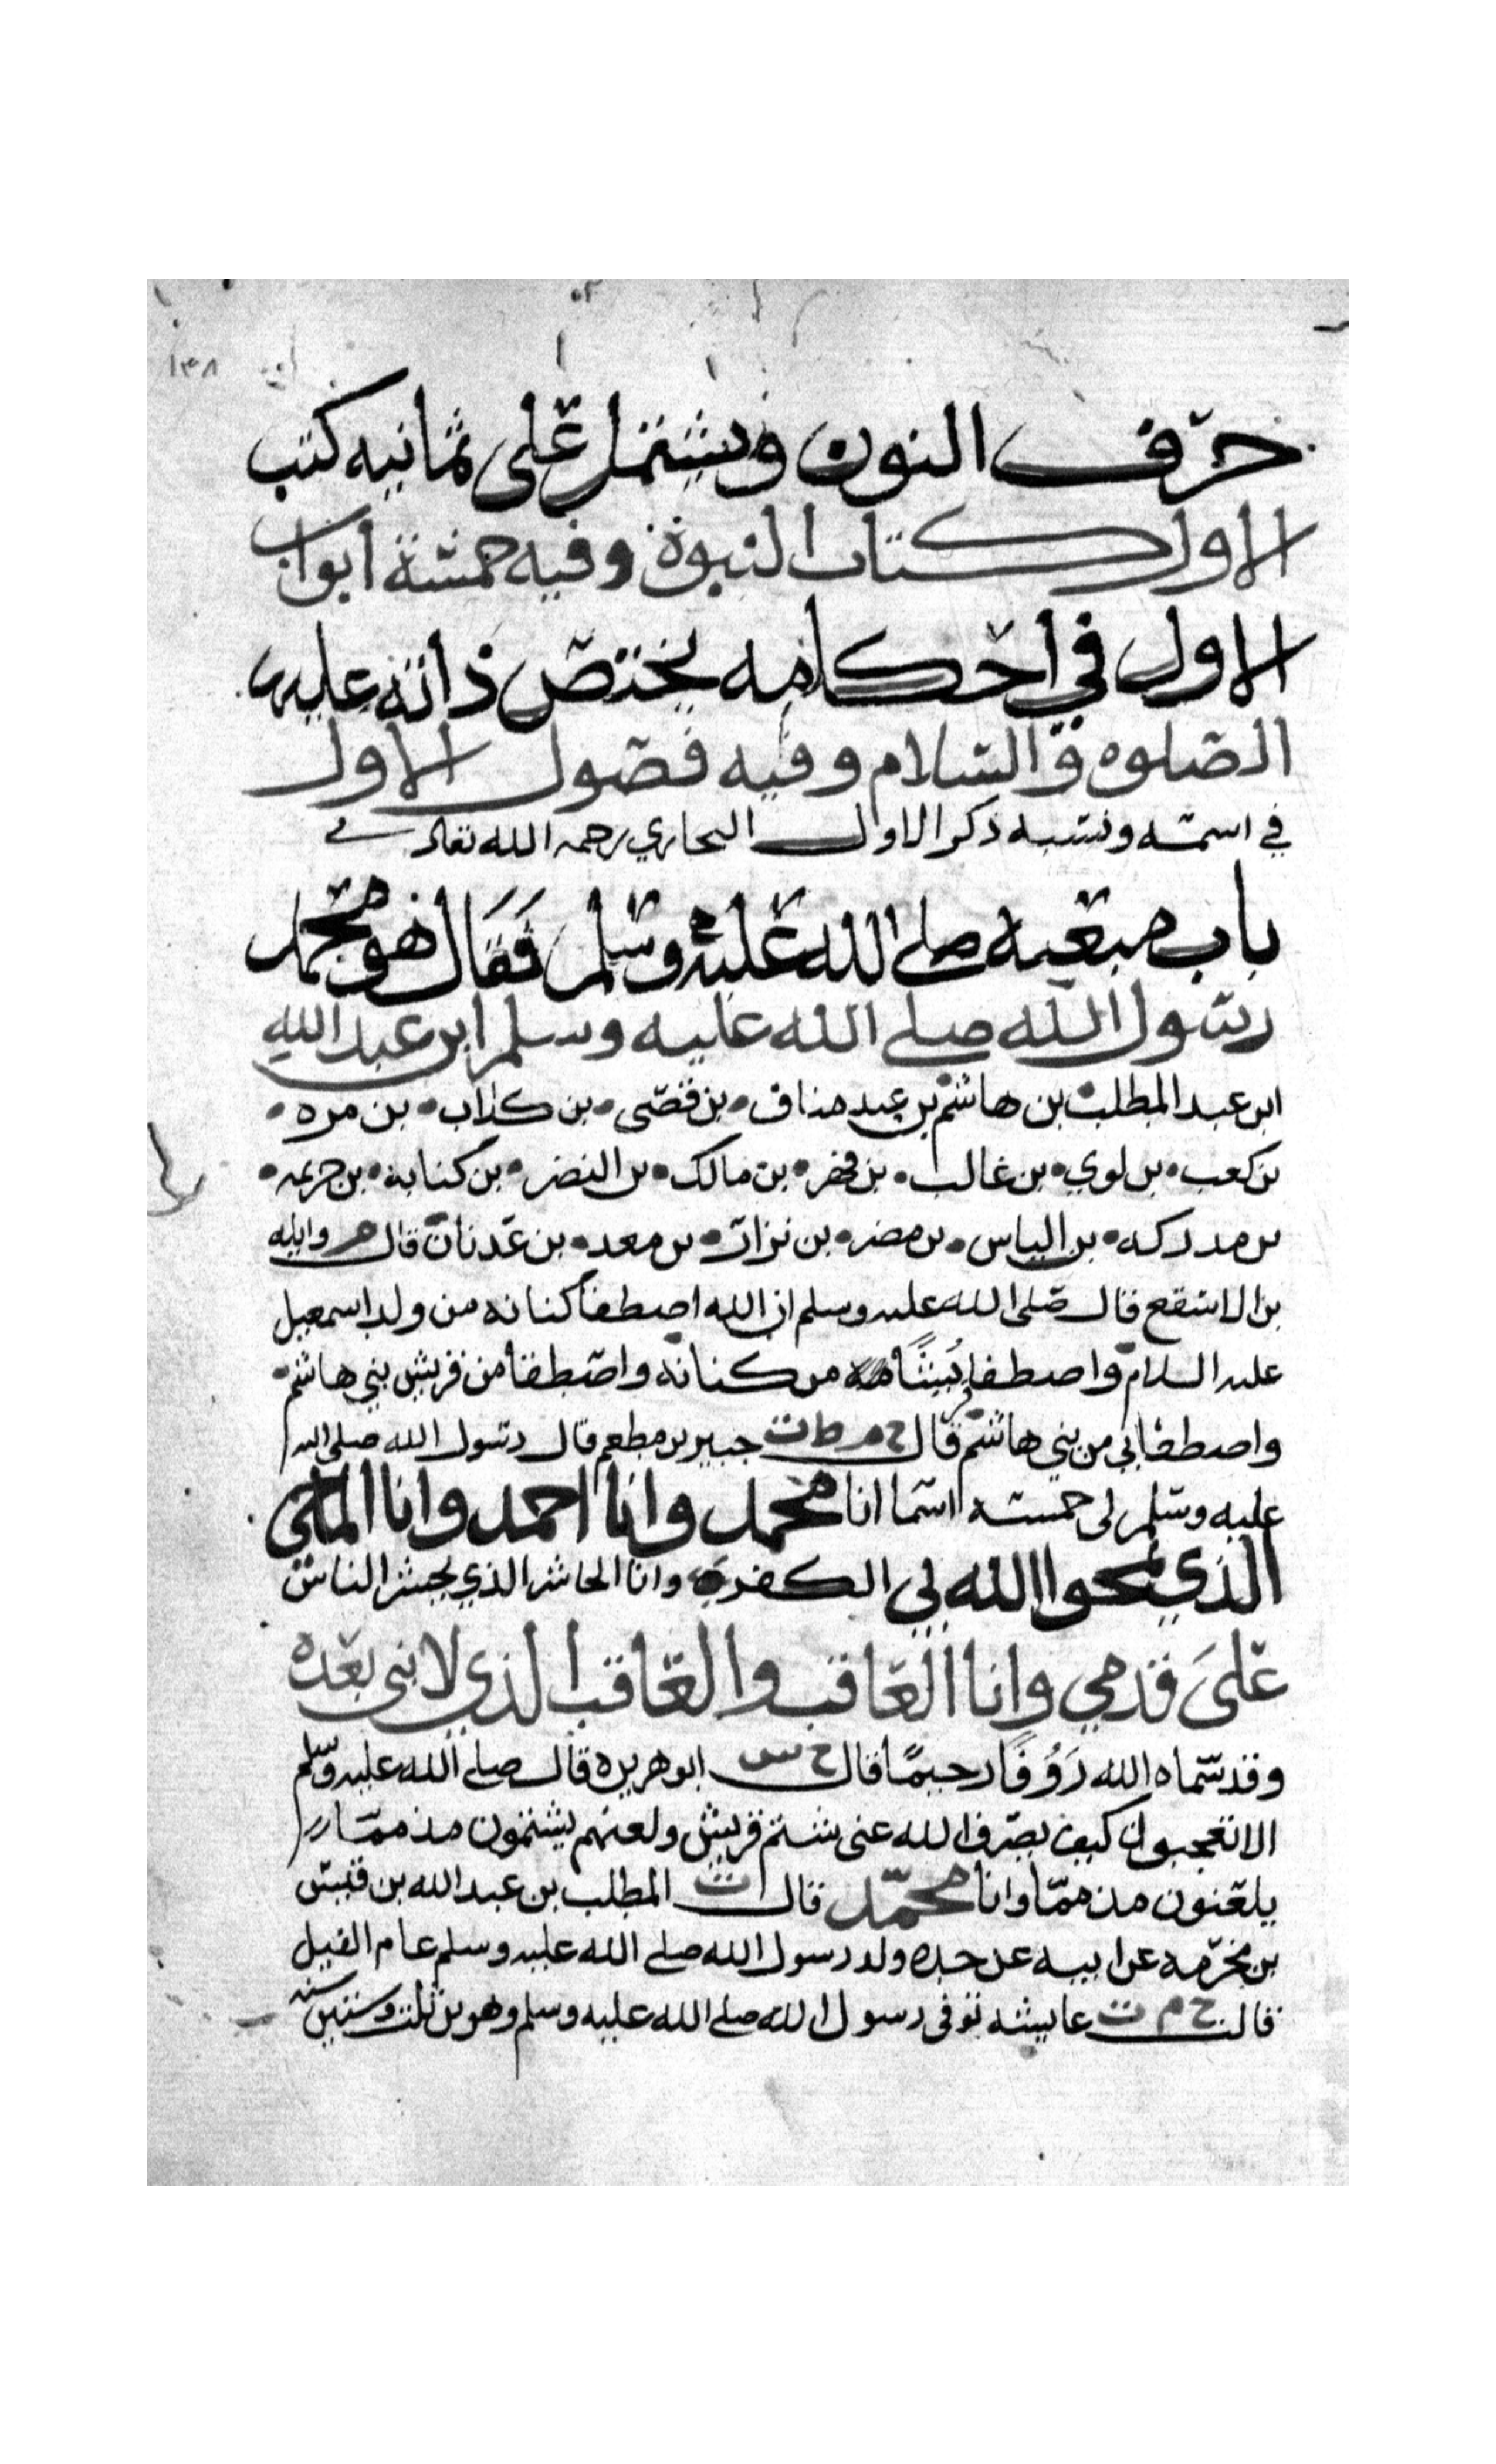 ١٣٨
حرف النون ويشتمل على ثمانيه كتب
الاول كتاب النبوة وفيه خمسة ابواب
الاول في احكامه يختص ذاته عليه
الصلوه والسلام وفيه فصول الاول
في اسمه ونسبه ذكر الاول البخاري رحمه الله تعالى
باب مبعثه صلى الله عليه وسلم فقال هو محمد
رسول الله صلى الله عليه وسلم ابن عبد الله
ابن عبد المطلب بن هاشم بن عبد مناف • بن قصى • بن كلاب • بن مره •
بن كعب • بن لوي • بن غالب • بن فهر • بن مالك • بن النضر • بن كنانه • بن خزيمه •
بن مدركه • بن الياس • بن مضر • بن نزار • بن معد • بن عدنان قال م واثله
بن الاسقع قال صلى الله عليه وسلم ان الله اصطفا كنانه من ولد اسمعيل
عليه السلام واصطفا قريشا من كنانه واصطفا من قريش بني هاشم •
واصطفاني من بني هاشم قال خ م ط ت جبير بن مطعم قال رسول الله صلى الله
عليه وسلم لى خمسه اسما انا محمد وانا احمد وانا الماحى
الذي يمحوا الله بي الكفر وانا الحاشر الذي يحشر الناس
على قدمي وانا العاقب والعاقب الذي لا نبى بعده
وقد سماه الله رَوُفًا رحيمًا قال خ س ابو هريره قال صلى الله عليه وسلم
الا تعجبون كيف يصرف الله عنى شتم قريش ولعنهم يشتمون مذمما
يلعنون مذمما وانا محمد قال ت المطلب بن عبد الله بن قيس
بن مخرمه عن ابيه عن جده ولد رسول الله صلى الله عليه وسلم عام الفيل
قالت خ م ت عايشه توفى رسول الله صلى الله عليه وسلم وهو بن ثلث وستين سنه